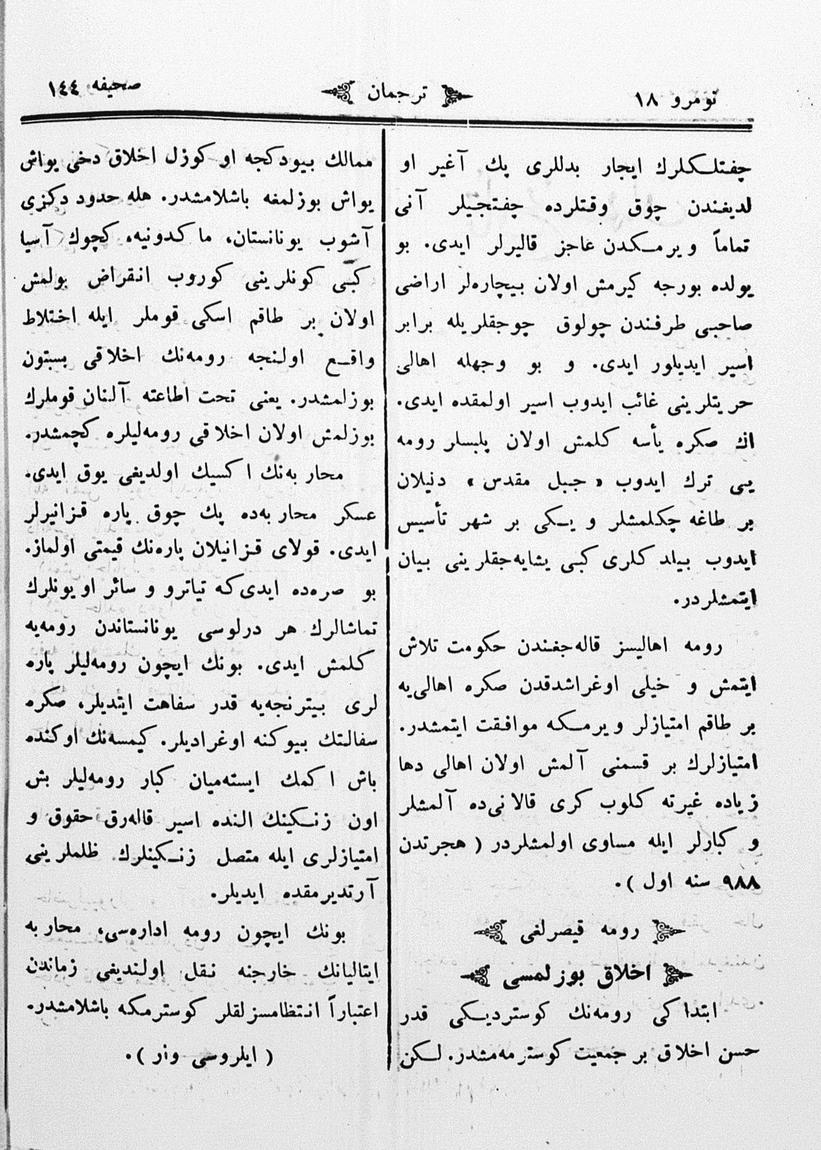 نومرو ١٨
ترجمان
صحیفه ١٤٤
چفتلكلرك ایجار بدللری پك آغیر او
لدیغندن چوق وقتلرده چفتجیلر آنی
تماماً ویرمكدن عاجز قالیرلر ایدی. بو
یولده بورجه كیرمش اولان بیچاره‌لر اراضی
صاحبی طرفندن چولوق چوجقلریله برابر
اسیر ایدیلور ایدی. و بو وجهله اهالی
حریتلرینی غائب ایدوب اسیر اولمقده ایدی.
اڭ صكره یأسه كلمش اولان پلبسلر رومه
یی ترك ایدوب «جبل مقدس» دنیلان
بر طاغه چكلمشلر و یكی بر شهر تأسیس
ایدوب بیلدكلری كبی یشایه‌جقلرینی بیان
ایتمشلردر.
رومه اهالیسز قاله‌جغندن حكومت تلاش
ایتمش و خیلی اوغراشدقدن صكره اهالی‌یه
بر طاقم امتیازلر ویرمكه موافقت ایتمشدر.
امتیازلرك بر قسمنی آلمش اولان اهالی دها
زیاده غیرته كلوب كری قالانی‌ده آلمشلر
و كبارلر ایله مساوی اولمشلردر ( هجرتدن
٩٨٨ سنه اول ).
رومه قیصرلغی
اخلاق بوزلمسی
ابتداكی رومه‌نك كوستردیكی قدر
حسن اخلاق بر جمعیت كوسترمه‌مشدر. لكن
ممالك بیودكجه او كوزل اخلاق دخی یواش
یواش بوزلمغه باشلامشدر. هله حدود دكزی
آشوب یونانستان، ماكدونیه، كچوك آسیا
كبی كونلرینی كوروب انقراض بولمش
اولان بر طاقم اسكی قوملر ایله اختلاط
واقع اولنجه رومه‌نك اخلاقی بسبتون
بوزلمشدر. یعنی تحت اطاعته آلنان قوملرك
بوزلمش اولان اخلاقی رومه‌لیلره كچمشدر.
محاربه‌نك اكسیك اولدیغی یوق ایدی.
عسكر محاربه‌ده پك چوق پاره قزانیرلر
ایدی. قولای قزانیلان پاره‌نك قیمتی اولماز.
بو صره‌ده ایدی‌كه تیاترو و سائر اویونلرك
تماشالرك هر درلوسی یونانستاندن رومه‌یه
كلمش ایدی. بونك ایچون رومه‌لیلر پاره
لری بیترنجه‌یه قدر سفاهت ایتدیلر، صكره
سفالتك بیوكنه اوغرادیلر. كیمسه‌نك اوكنده
باش اكمك ایسته‌میان كبار رومه‌لیلر بش
اون زنكینك النده اسیر قاله‌رق حقوق و
امتیازلری ایله متصل زنكینلرك ظلملرینی
آرتدیرمقده ایدیلر.
بونك ایچون رومه اداره‌سی، محاربه
ایتالیانك خارجنه نقل اولندیغی زماندن
اعتباراً انتظامسزلقلر كوسترمكه باشلامشدر.
( ایلروسی وار ).